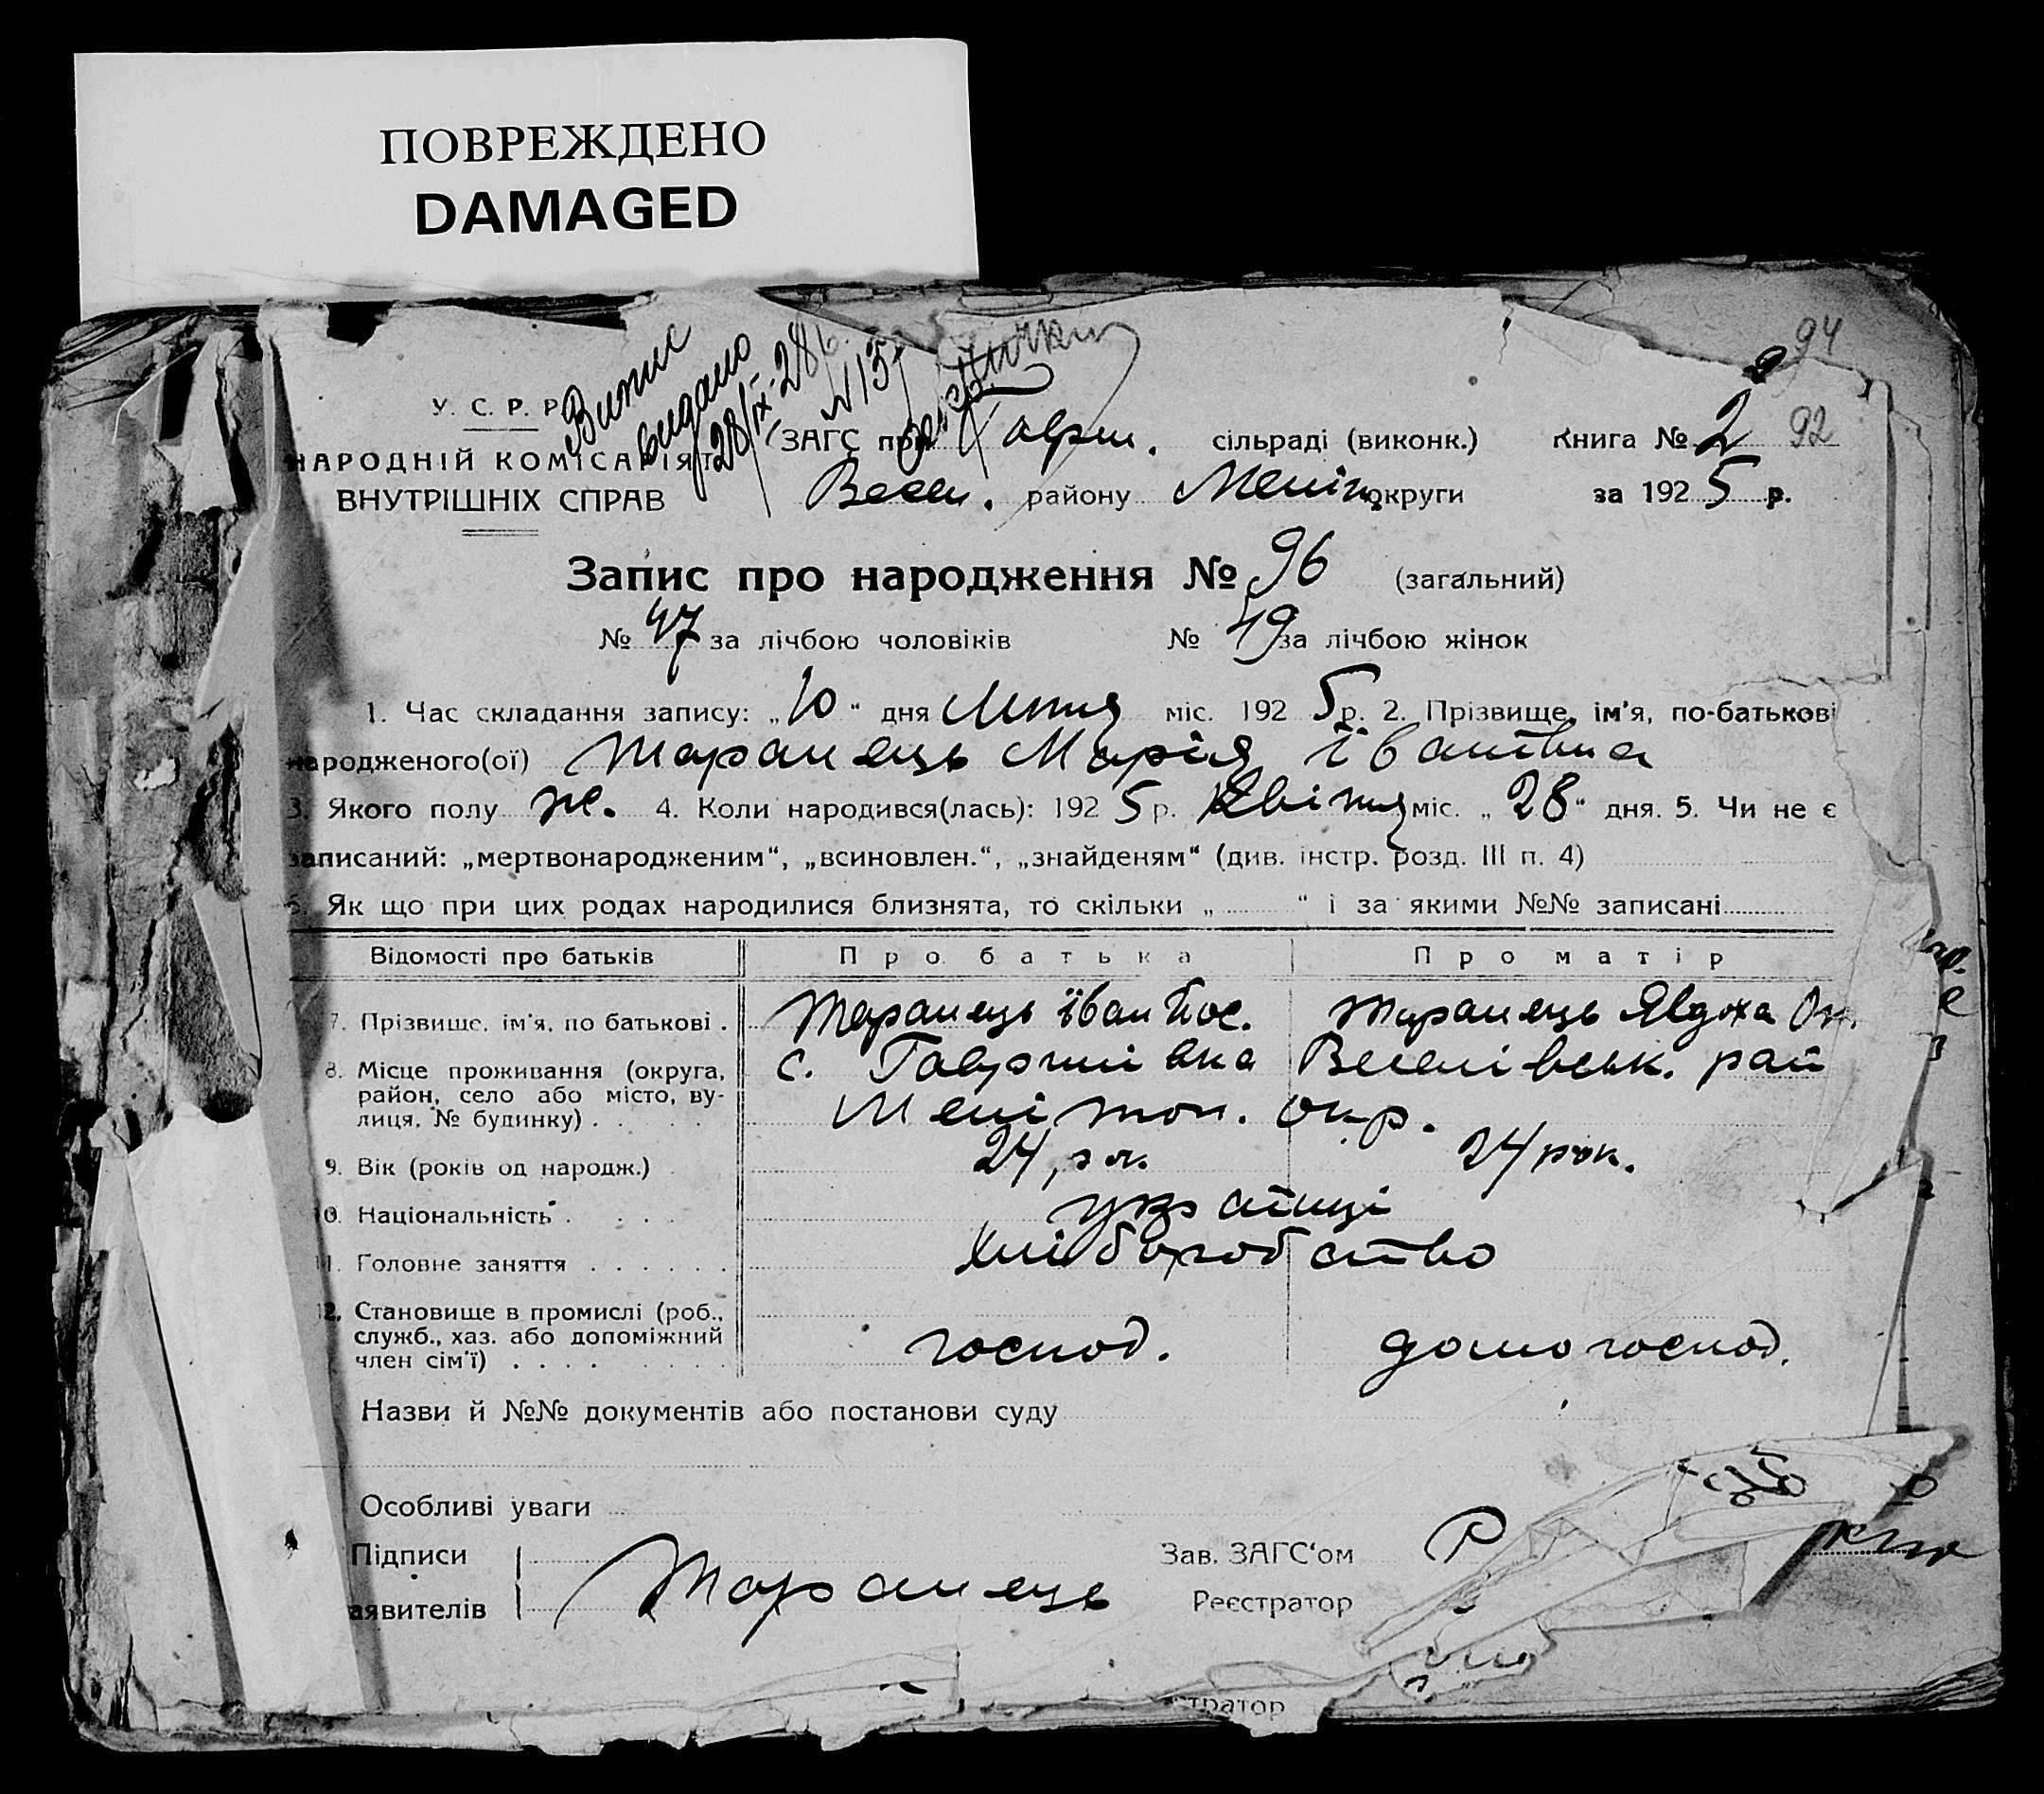 ПОВРЕЖДЕНО
DAMAGED
94
Випис
видано
28/ІХ-28
У. С. Р. Р.
НАРОДНІЙ КОМІСАРІЯТ
ВНУТРІШНІХ СПРАВ
ЗАГС при Гаврил. сільраді (виконк.) Книга № 2 92
Весел. району Меліт. округи за 1925 р.
Запис про народження № 96 (загальний)
№ 47 за лічбою чоловіків № 49 за лічбою жінок
1. Час складання запису: „10“ дня Липня міс. 1925 р. 2. Прізвище, ім'я, по-батькові
народженого(ої) Таранець Марія Іванівна
3. Якого полу ж. 4. Коли народився(лась): 1925 р. Квітня міс. „28“ дня. 5. Чи не є
записаний: „мертвонародженим“, „всиновлен.“, „знайденям“ (див. інстр. розд. III п. 4)
6. Як що при цих родах народилися близнята, то скільки „ “ і за якими №№ записані
Відомості про батьків Про батька Про матір
7. Прізвище, ім'я, по батькові . Таранець Іван Йос. Таранець Явдоха
8. Місце проживання (округа, с. Гаврилівка Веселівськ. рай
район, село або місто, ву-
лиця, № будинку) . Мелітоп. окр.
9. Вік (років од народж.) 24 рок. 24 рок.
10. Національність . українці
11. Головне заняття . хліборобство
12. Становище в промислі (роб.,
служб., хаз. або допоміжний
член сім'ї) . господ. домогоспод.
Назви й №№ документів або постанови суду
Особливі уваги
Підписи Зав. ЗАГС'ом
аявителів Таранець Реєстратор
стратор